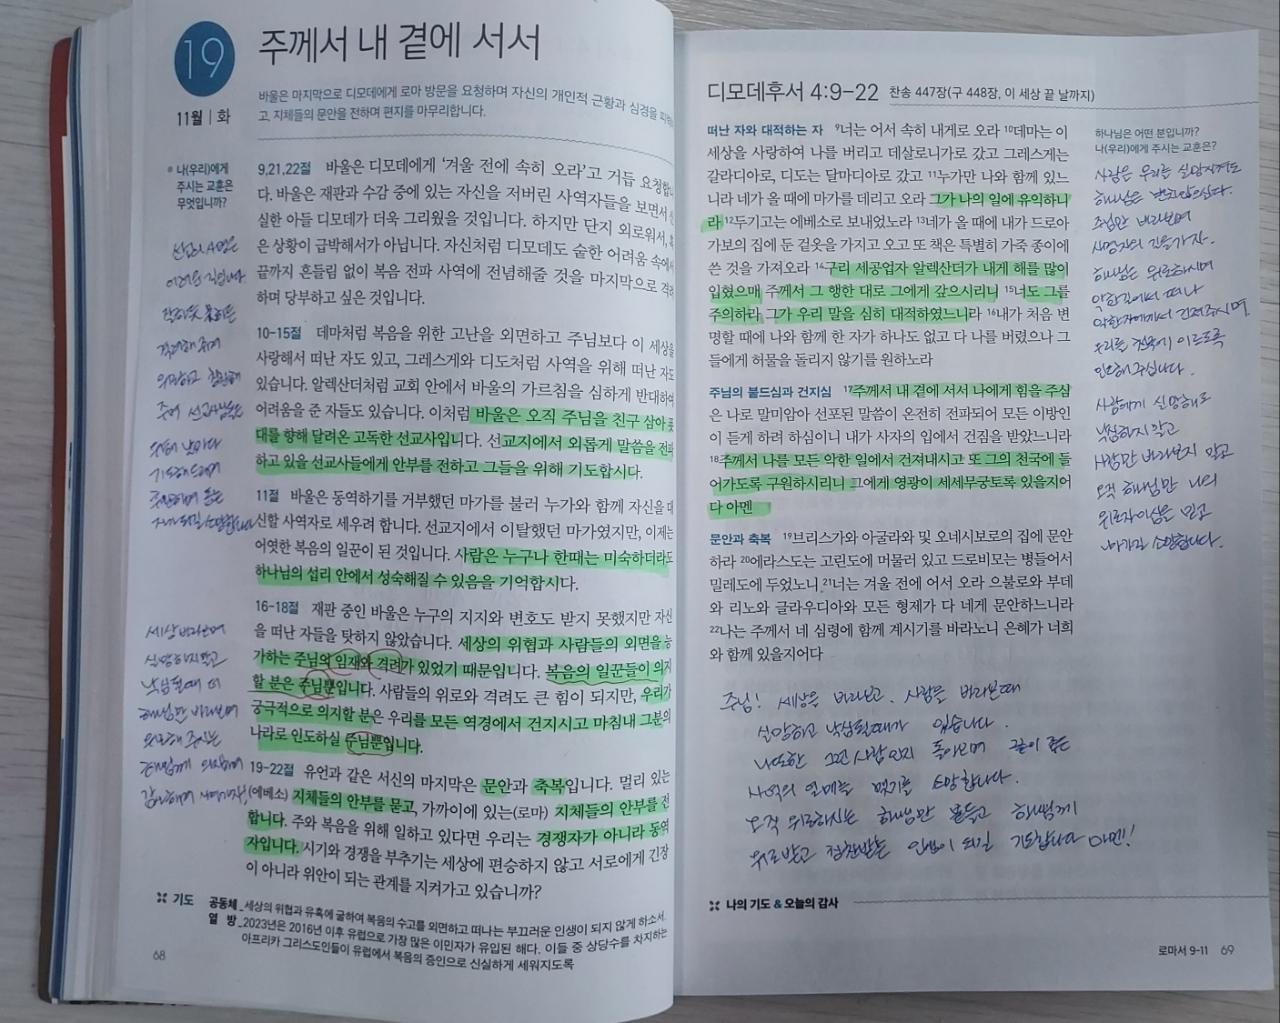 19
11월 | 화
주께서 내 곁에 서서
바울은 마지막으로 디모데에게 로마 방문을 요청하며 자신의 개인적 근황과 심경을
고, 지체들의 문안을 전하며 편지를 마무리합니다.
나(우리)에게
주시는 교훈은
무엇입니까?
9,21,22절 바울은 디모데에게 ‘겨울 전에 속히 오라’고 거듭 요청합니
다. 바울은 재판과 수감 중에 있는 자신을 저버린 사역자들을 보면서
실한 아들 디모데가 더욱 그리웠을 것입니다. 하지만 단지 외로워서,
은 상황이 급박해서가 아닙니다. 자신처럼 디모데도 숱한 어려움 속에서
끝까지 흔들림 없이 복음 전파 사역에 전념해줄 것을 마지막으로 격려
하며 당부하고 싶은 것입니다.
10-15절 데마처럼 복음을 위한 고난을 외면하고 주님보다 이 세상을
사랑해서 떠난 자도 있고, 그레스게와 디도처럼 사역을 위해 떠난 자도
있습니다. 알렉산더처럼 교회 안에서 바울의 가르침을 심하게 반대하여
어려움을 준 자들도 있습니다. 이처럼 바울은 오직 주님을 친구 삼아 푯
대를 향해 달려온 고독한 선교사입니다. 선교지에서 외롭게 말씀을 전파
하고 있을 선교사들에게 안부를 전하고 그들을 위해 기도합시다.
11절 바울은 동역하기를 거부했던 마가를 불러 누가와 함께 자신을 대
신할 사역자로 세우려 합니다. 선교지에서 이탈했던 마가였지만, 이제는
어엿한 복음의 일꾼이 된 것입니다. 사람은 누구나 한때는 미숙하더라도
하나님의 섭리 안에서 성숙해질 수 있음을 기억합시다.
16-18절 재판 중인 바울은 누구의 지지와 변호도 받지 못했지만 자신
을 떠난 자들을 탓하지 않았습니다. 세상의 위협과 사람들의 외면을 능
가하는 주님의 임재와 격려가 있었기 때문입니다. 복음의 일꾼들이 의지
할 분은 주님뿐입니다. 사람들의 위로와 격려도 큰 힘이 되지만, 우리가
궁극적으로 의지할 분은 우리를 모든 역경에서 건지시고 마침내 그분의
나라로 인도하실 주님뿐입니다.
19-22절 유언과 같은 서신의 마지막은 문안과 축복입니다. 멀리 있는
(에베소) 지체들의 안부를 묻고, 가까이에 있는(로마) 지체들의 안부를 전
합니다. 주와 복음을 위해 일하고 있다면 우리는 경쟁자가 아니라 동역
자입니다. 시기와 경쟁을 부추기는 세상에 편승하지 않고 서로에게 긴장
이 아니라 위안이 되는 관계를 지켜가고 있습니까?
세상 바라보며
실망하지 말고
낙심될 때 더
하나님만 바라보며
위로해 주시는
기도
공동체_세상의 위협과 유혹에 굴하여 복음의 수고를 외면하고 떠나는 부끄러운 인생이 되지 않게 하소서.
열 방_2023년은 2016년 이후 유럽으로 가장 많은 이민자가 유입된 해다. 이들 중 상당수를 차지하는
아프리카 그리스도인들이 유럽에서 복음의 증인으로 신실하게 세워지도록
68
디모데후서 4:9-22 찬송 447장(구 448장, 이 세상 끝 날까지)
떠난 자와 대적하는 자 9너는 어서 속히 내게로 오라 10데마는 이
세상을 사랑하여 나를 버리고 데살로니가로 갔고 그레스게는
갈라디아로, 디도는 달마디아로 갔고 11누가만 나와 함께 있느
니라 네가 올 때에 마가를 데리고 오라 그가 나의 일에 유익하니
라 12두기고는 에베소로 보내었노라 13네가 올 때에 내가 드로아
가보의 집에 둔 겉옷을 가지고 오고 또 책은 특별히 가죽 종이에
쓴 것을 가져오라 14구리 세공업자 알렉산더가 내게 해를 많이
입혔으매 주께서 그 행한 대로 그에게 갚으시리니 15너도 그를
주의하라 그가 우리 말을 심히 대적하였느니라 16내가 처음 변
명할 때에 나와 함께 한 자가 하나도 없고 다 나를 버렸으나 그
들에게 허물을 돌리지 않기를 원하노라
주님의 붙드심과 건지심 17주께서 내 곁에 서서 나에게 힘을 주심
은 나로 말미암아 선포된 말씀이 온전히 전파되어 모든 이방인
이 듣게 하려 하심이니 내가 사자의 입에서 건짐을 받았느니라
18주께서 나를 모든 악한 일에서 건져내시고 또 그의 천국에 들
어가도록 구원하시리니 그에게 영광이 세세무궁토록 있을지어
다 아멘
문안과 축복 19브리스가와 아굴라와 및 오네시보로의 집에 문안
하라 20에라스도는 고린도에 머물러 있고 드로비모는 병들어서
밀레도에 두었노니 21너는 겨울 전에 어서 오라 으불로와 부데
와 리노와 글라우디아와 모든 형제가 다 네게 문안하느니라
22나는 주께서 네 심령에 함께 계시기를 바라노니 은혜가 너희
와 함께 있을지어다
하나님은 어떤 분입니까?
나(우리)에게 주시는 교훈은?
주님만 바라보며
하나님은 위로하시며
사람에게 실망해도
낙심하지 말고
사람만 바라보지 말고
오직 하나님만 나의
위로자이심을 믿고
나아가길 소망합니다.
주님! 세상을 바라보고, 사람을 바라볼때
실망하고 낙심될때가 있습니다.
나또한 그런 사람인지 돌아보며
사역의 열매를 맺기를 소망합니다.
오직 위로하시는 하나님만 붙들고 하나님께
위로받고 칭찬받는 인생이 되길 기도합니다 아멘!!
나의 기도 & 오늘의 감사
로마서 9-11 69